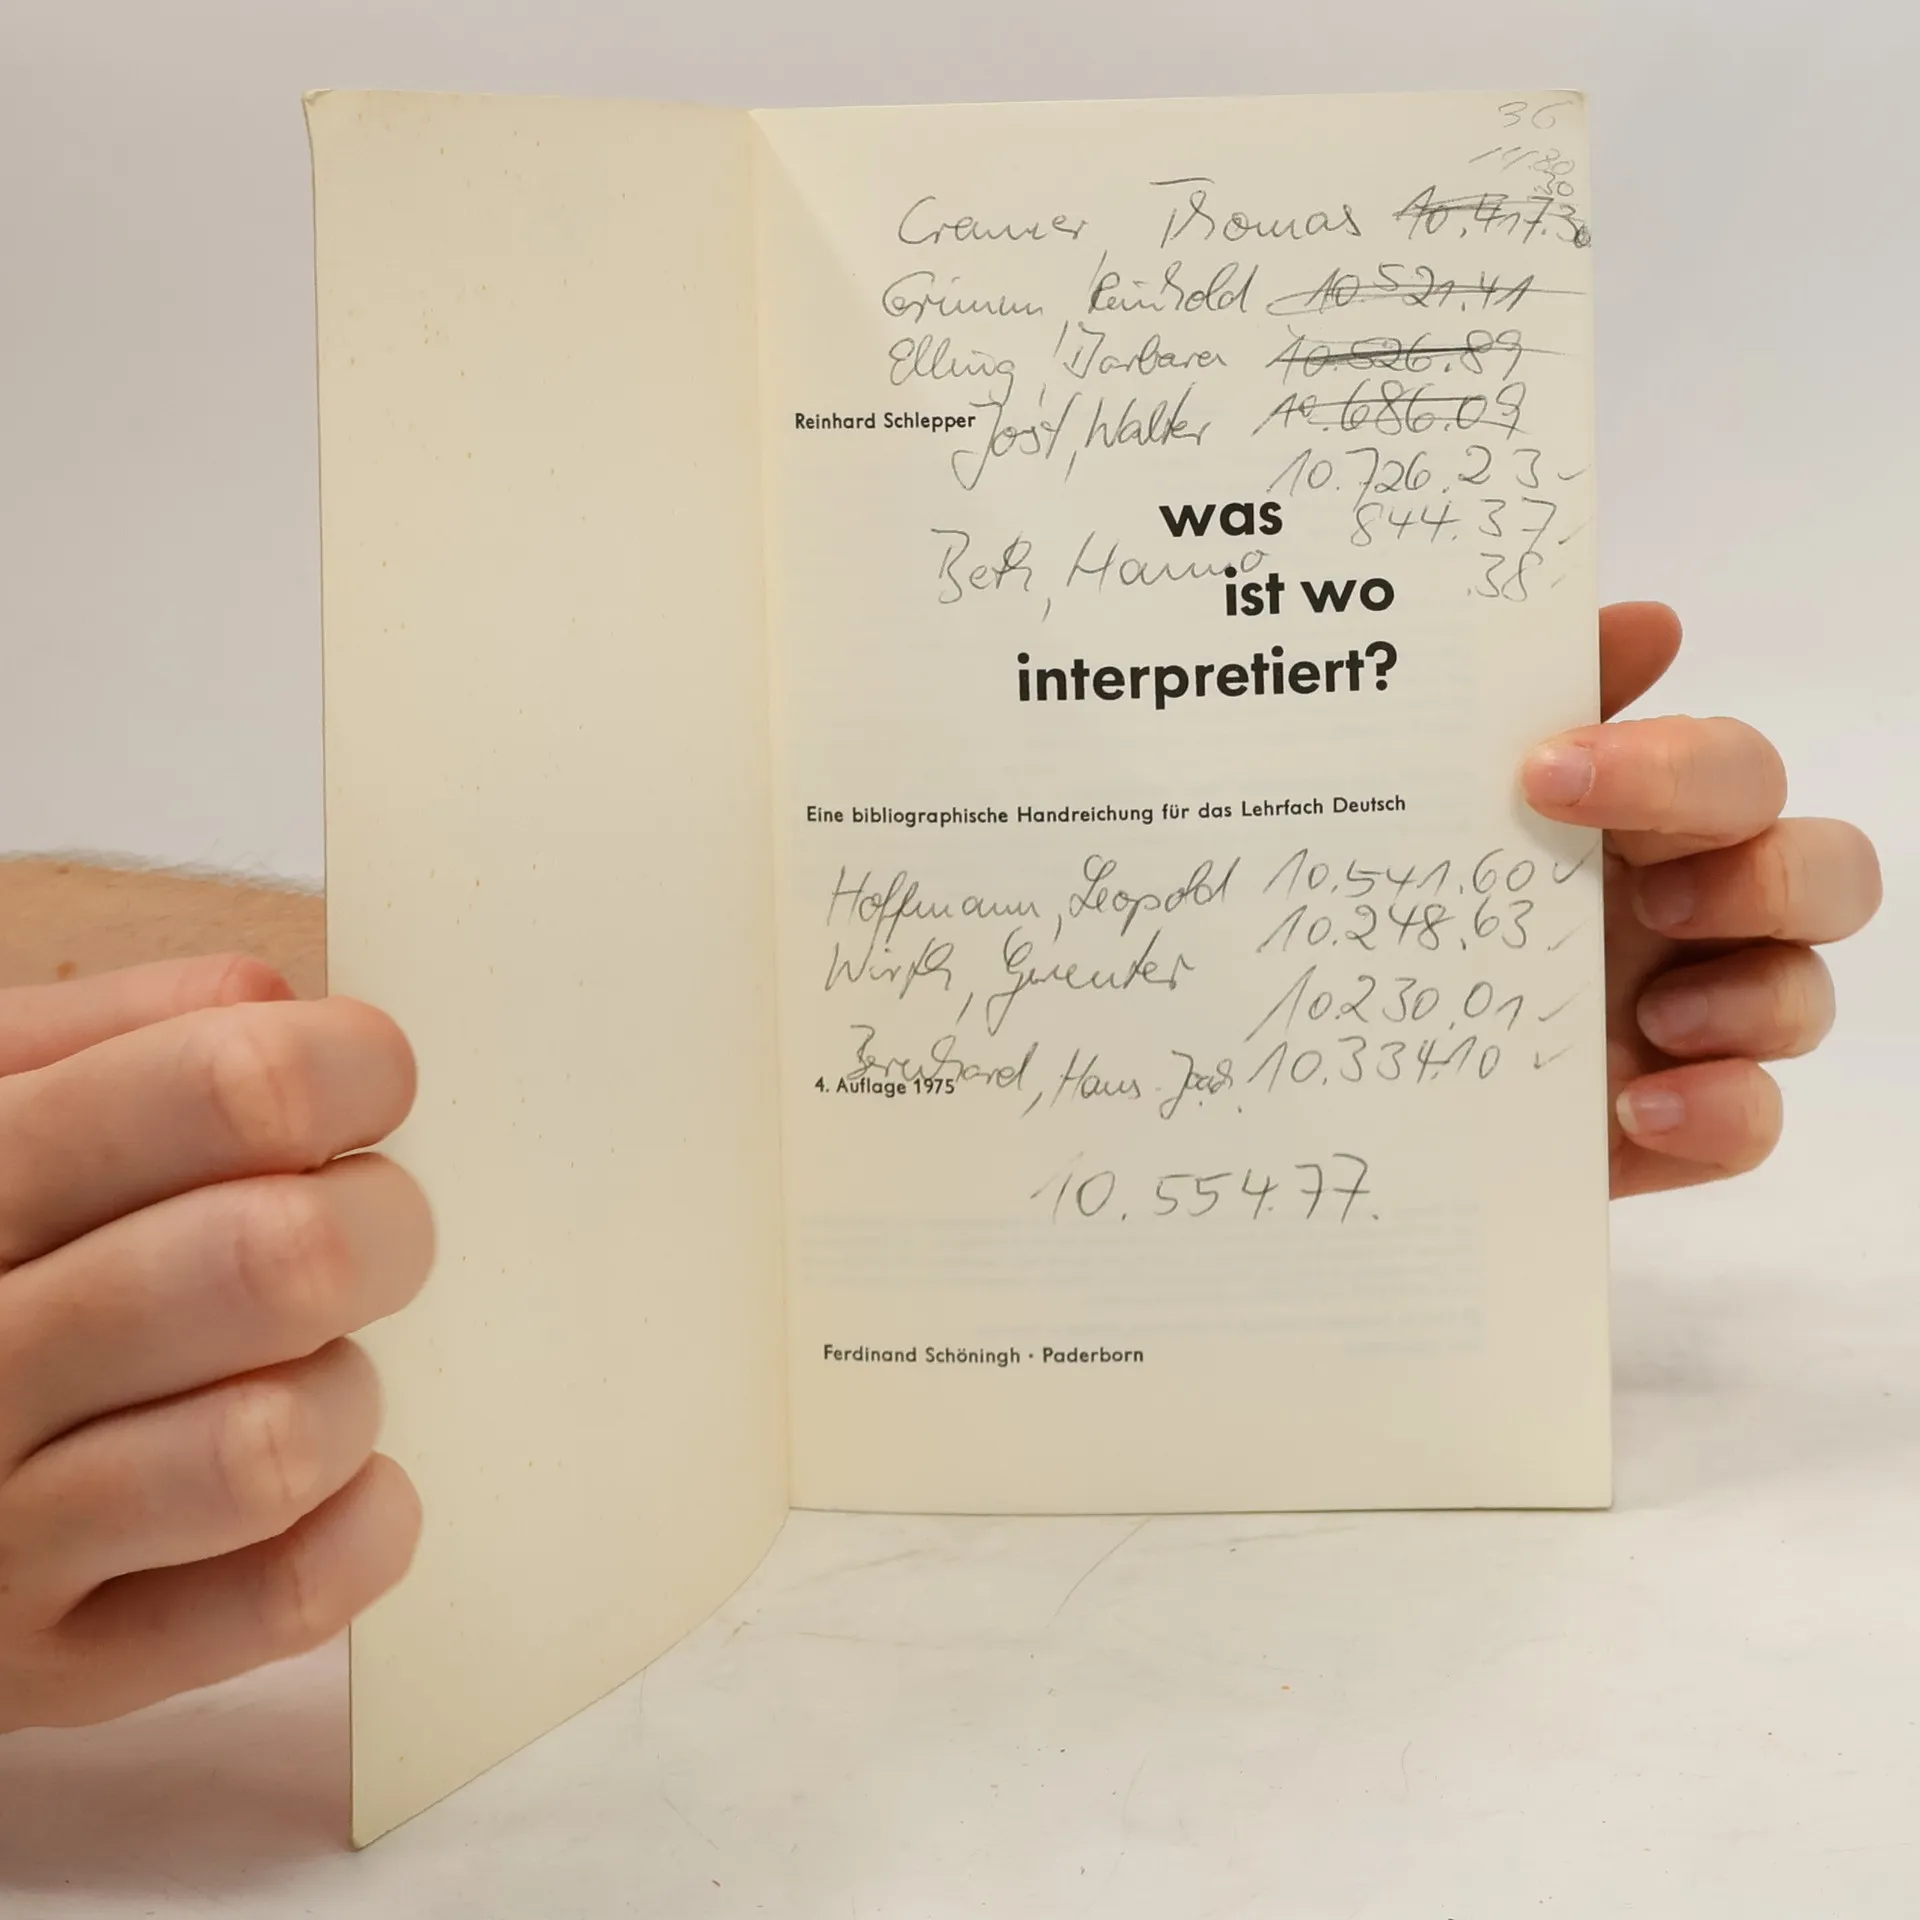 36
11.80
30
Cramer, Thomas 10.417.30
Grimm, Reinhold 10.521.41
Elling, Barbara 10.526.89
Reinhard Schlepper
Jost, Walter 10.686.09
10.726.23 ✓
was 844.37 ✓
Beth, Hanno .38
ist wo
interpretiert?
Eine bibliographische Handreichung für das Lehrfach Deutsch
Hoffmann, Leopold 10.541.60 ✓
10.248.63
Wirth, Guenter
10.230.01 ✓
Bernhard, Hans 10.334.10 ✓
4. Auflage 1975
10.554.77.
Ferdinand Schöningh · Paderborn